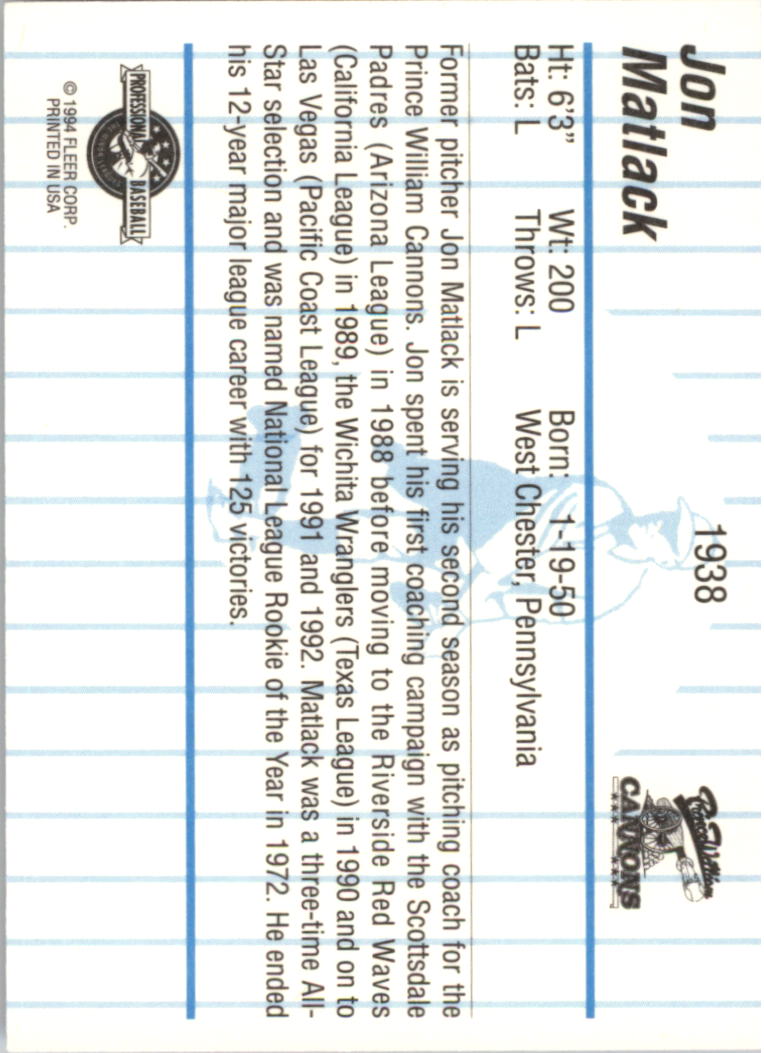 Jon
Matlack
1938
Prince William
CANNONS
Ht: 6'3" Wt: 200 Born: 1-19-50
Bats: L Throws: L West Chester, Pennsylvania
Former pitcher Jon Matlack is serving his second season as pitching coach for the
Prince William Cannons. Jon spent his first coaching campaign with the Scottsdale
Padres (Arizona League) in 1988 before moving to the Riverside Red Waves
(California League) in 1989, the Wichita Wranglers (Texas League) in 1990 and on to
Las Vegas (Pacific Coast League) for 1991 and 1992. Matlack was a three-time All-
Star selection and was named National League Rookie of the Year in 1972. He ended
his 12-year major league career with 125 victories.
PROFESSIONAL BASEBALL
© 1994 FLEER CORP.
PRINTED IN USA